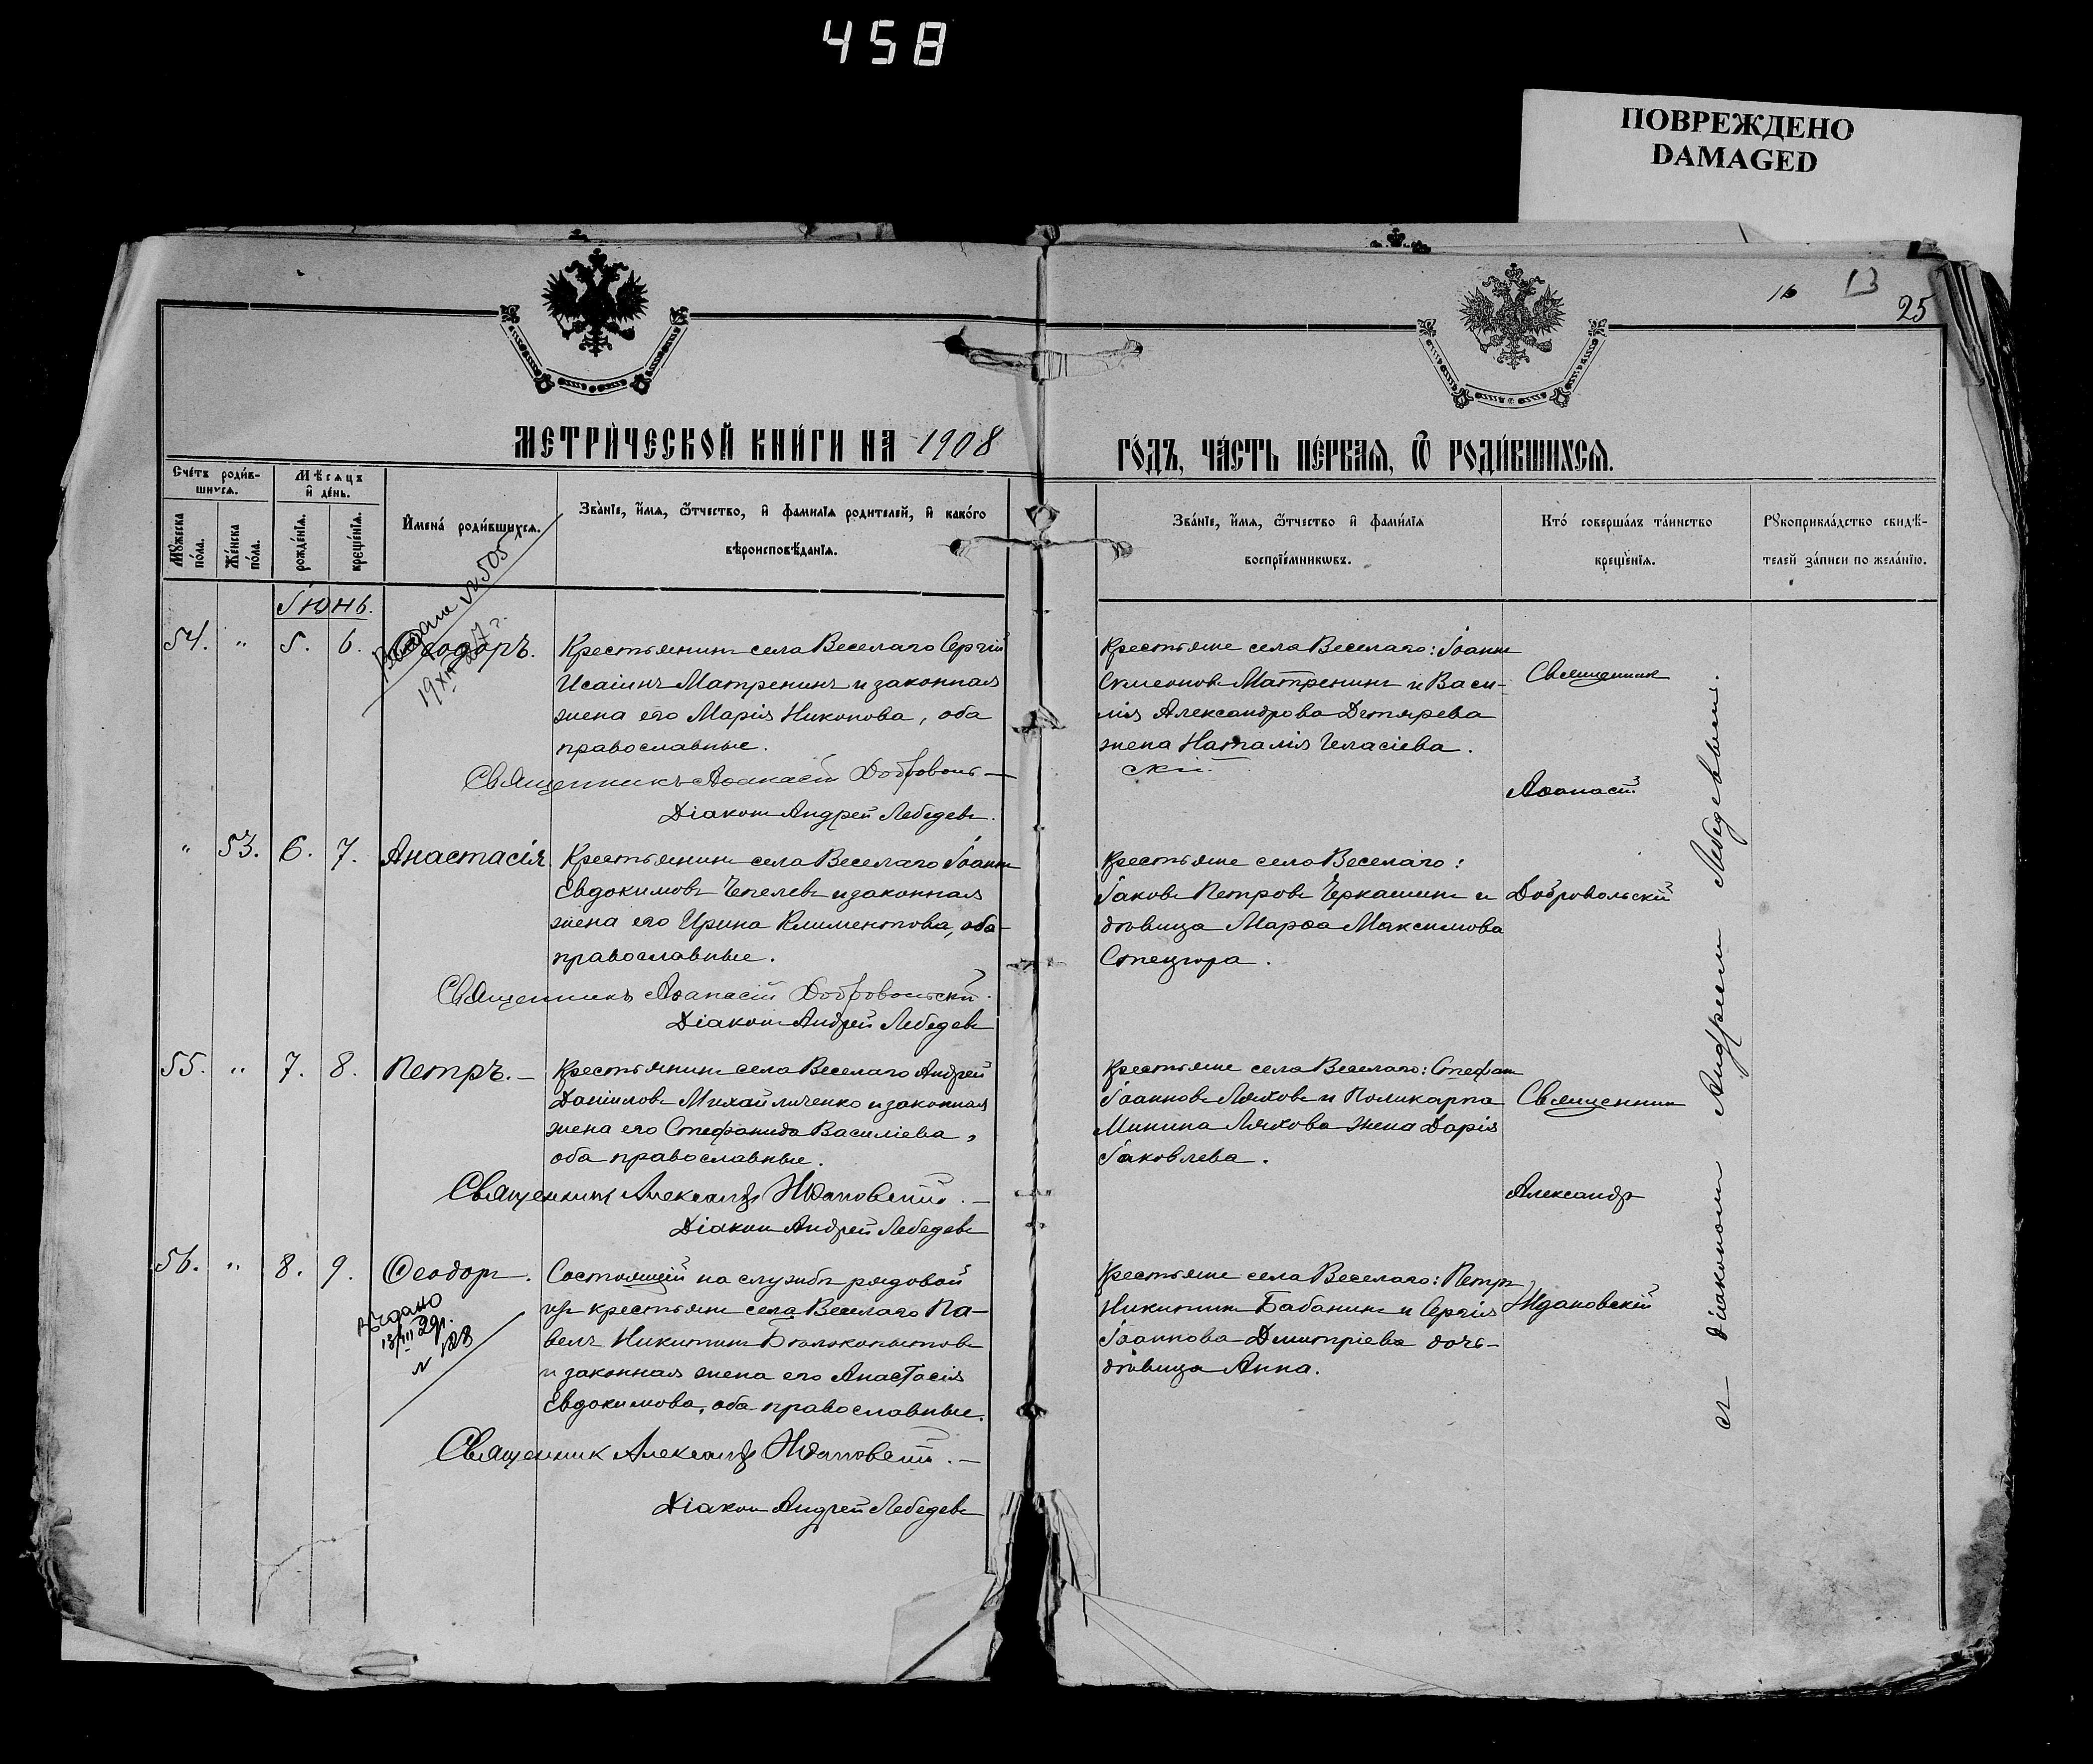 458
ПОВРЕЖДЕНО
DAMAGED
16 13
25
МЕТРИ́ЧЕСКОЙ КНИ́ГИ НА 1908
ГО́ДЪ, ЧА́СТЬ ПЕ́РВАЯ, Ѿ РОДИ́ВШИХСЯ.
Сче́тъ роди́в-
шихся.
Мѣсяцъ
и҆ де́нь.
Му́жеска
по́ла.
Же́нска
по́ла.
рожде́нїя.
креще́нїя.
И҆мена̀ роди́вшихся.
Зва́нїе, и҆́мя, ѻ҆́тчество, и҆ фами́лїя роди́телей, и҆ како́го
вѣроисповѣ́данїя.
Зва́нїе, и҆́мя, ѻ҆́тчество и҆ фами́лїя
воспрїе́мникѡвъ.
Кто̀ соверша́лъ та́инство
креще́нїя.
Рукоприкла́дство свидѣ́-
телей за́писи по жела́нїю.
Іюнь.
54. " 5. 6. Ѳеодоръ.
№ 505
19 XII 27 г.
Крестьянинъ села Веселаго Сергій
Исаіинъ Матренинъ и законная
жена его Марія Никонова, оба
православные.
Священникъ Аѳанасій Добровольский.
Діаконъ Андрей Лебедевъ.
Крестьяне села Веселаго: Іоаннъ
Симеоновъ Матренинъ и Васи-
лія Александрова Дегтярева
жена Наталія Геласіева.
" 53. 6. 7. Анастасія.
Крестьянинъ села Веселаго Іоаннъ
Евдокимовъ Чепелевъ и законная
жена его Ирина Климентова, оба
православные.
Священникъ Аѳанасій Добровольскій.
Діаконъ Андрей Лебедевъ
Крестьяне села Веселаго:
Іаковъ Петровъ Черкашинъ и
дѣвица Марѳа Максимова
55. " 7. 8. Петръ.
Крестьянинъ села Веселаго Андрей
Даніиловъ Михайличенко и законная
жена его Стефанида Василіева,
оба православные.
Священникъ Александръ Ждановскій.
Діаконъ Андрей Лебедевъ
Крестьяне села Веселаго: Стефанъ
Іоанновъ Ляховъ и Поликарпа
Минина Ляхова жена Дарія
Іаковлева.
56. " 8. 9. Ѳеодоръ.
Выдано
13/III 29 г.
№ 123
Состоящій на службѣ рядовой
изъ крестьянъ села Веселаго Па-
велъ Никитинъ Бѣлокопытовъ
и законная жена его Анастасія
Евдокимова, оба православные.
Священник Александръ Ждановскій.
Діаконъ Андрей Лебедевъ
Крестьяне села Веселаго: Петръ
Никитинъ Бабанинъ и Сергія
Іоаннова Димитріева дочь-
дѣвица Анна.
Священникъ
Аѳанасій
Добровольскій
Священникъ
Александръ
Ждановскій
съ діакономъ Андреемъ Лебедевымъ.